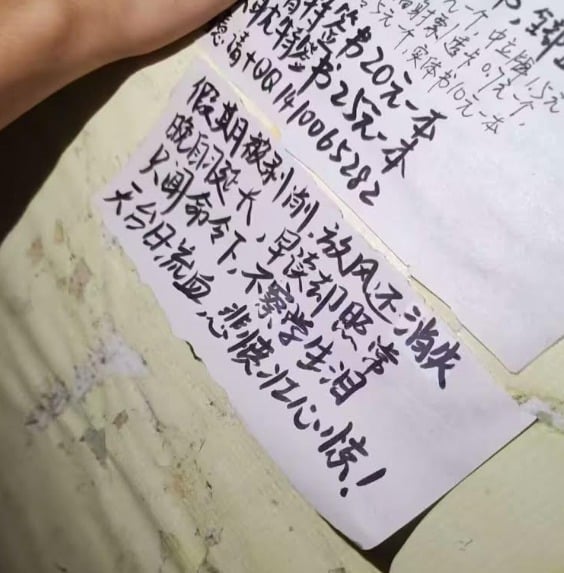 中立牌1.5元
0.7元一个,
5元一个,实体书10元一本
特签书20元一本
特签书25元一本
请+QQ1410065282
假期被剥削,放风还消失
晚自习延长,早读却照常
只闻命令下,不察学生泪
天台日流血,悲愤让心惊!